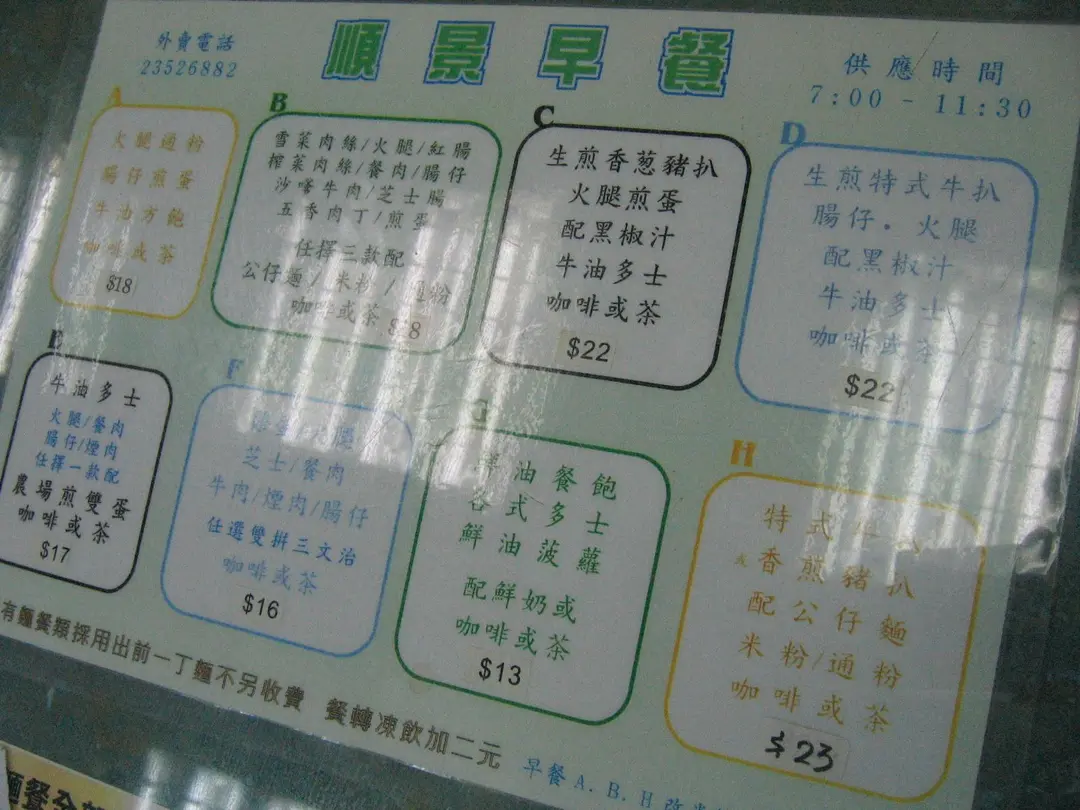 外賣電話
23526882
順景早餐
供應時間
7:00 - 11:30
A
火腿通粉
腸仔煎蛋
牛油方飽
咖啡或茶
$18
B
雪菜肉絲/火腿/紅腸
榨菜肉絲/餐肉/腸仔
沙嗲牛肉/芝士腸
五香肉丁/煎蛋
任擇三款配
公仔麵/米粉/通粉
咖啡或茶
C
生煎香葱豬扒
火腿煎蛋
配黑椒汁
牛油多士
咖啡或茶
$22
D
生煎特式牛扒
腸仔．火腿
配黑椒汁
牛油多士
咖啡或茶
$22
E
牛油多士
火腿/餐肉
腸仔/煙肉
任擇一款配
農場煎雙蛋
咖啡或茶
$17
F
火腿
芝士/餐肉
牛肉/煙肉/腸仔
任選雙拼三文治
咖啡或茶
$16
G
油餐飽
各式多士
鮮油菠蘿
配鮮奶或
咖啡或茶
$13
H
特式
香煎豬扒
配公仔麵
米粉/通粉
咖啡或茶
$23
有麵餐類採用出前一丁麵不另收費 餐轉凍飲加二元
早餐A.B.H
麵餐